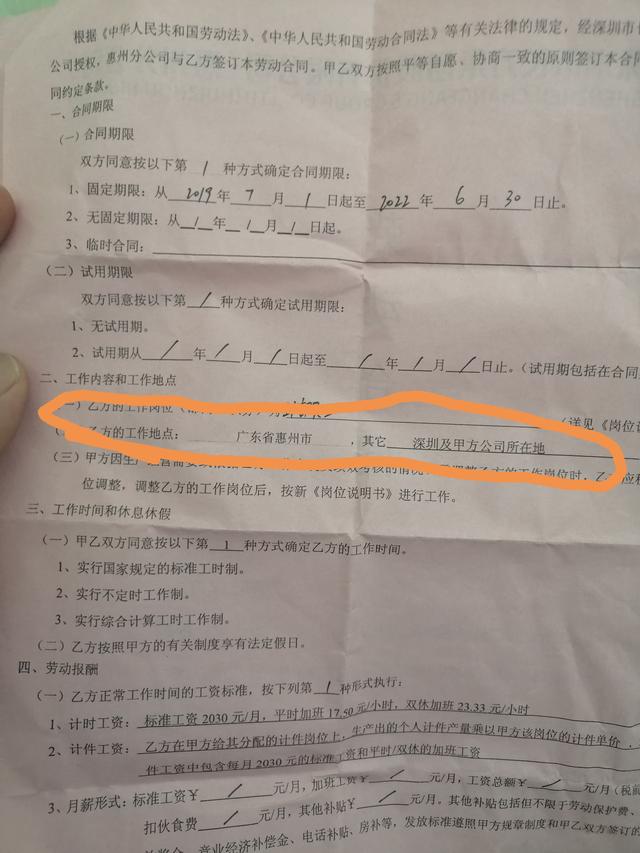 根据《中华人民共和国劳动法》、《中华人民共和国劳动合同法》等有关法律的规定，经深圳市
公司授权，惠州分公司与乙方签订本劳动合同。甲乙双方按照平等自愿、协商一致的原则签订本合
同约定条款。
一、合同期限
（一）合同期限
双方同意按以下第 1 种方式确定合同期限：
1、固定期限：从 2019 年 7 月 1 日起至 2022 年 6 月 30 日止。
2、无固定期限：从 / 年 / 月 / 日起。
3、临时合同：
（二）试用期限
双方同意按以下第 / 种方式确定试用期限：
1、无试用期。
2、试用期从 / 年 / 月 / 日起至 / 年 / 月 / 日止。（试用期包括在合同
二、工作内容和工作地点
乙方的工作岗位 （详见《岗位说
乙方的工作地点： 广东省惠州市 ，其它 深圳及甲方公司所在地
（三）甲方因生产 的情况 调整乙方的工作岗位时，乙
位调整，调整乙方的工作岗位后，按新《岗位说明书》进行工作。
三、工作时间和休息休假
（一）甲乙双方同意按以下第 1 种方式确定乙方的工作时间。
1、实行国家规定的标准工时制。
2、实行不定时工作制。
3、实行综合计算工时工作制。
（二）乙方按照甲方的有关制度享有法定假日。
四、劳动报酬
（一）乙方正常工作时间的工资标准，按下列第 1 种形式执行：
1、计时工资：标准工资 2030 元/月，平时加班 17.50 元/小时，双休加班 23.33 元/小时
2、计件工资：乙方在甲方给其分配的计件岗位上，生产出的个人计件产量乘以甲方该岗位的计件单价，
件工资中包含每月 2030 元的标准工资和平时/双休的加班工资
3、月薪形式：标准工资￥ / 元/月，加班工资￥ / 元/月，工资总额￥ / 元/月（税前
扣伙食费 / 元/月，其他补贴￥ / 元/月。其他补贴包括但不限于劳动保护费、
经济补偿金、电话补贴、房补等，发放标准遵照甲方规章制度和甲乙双方签订的